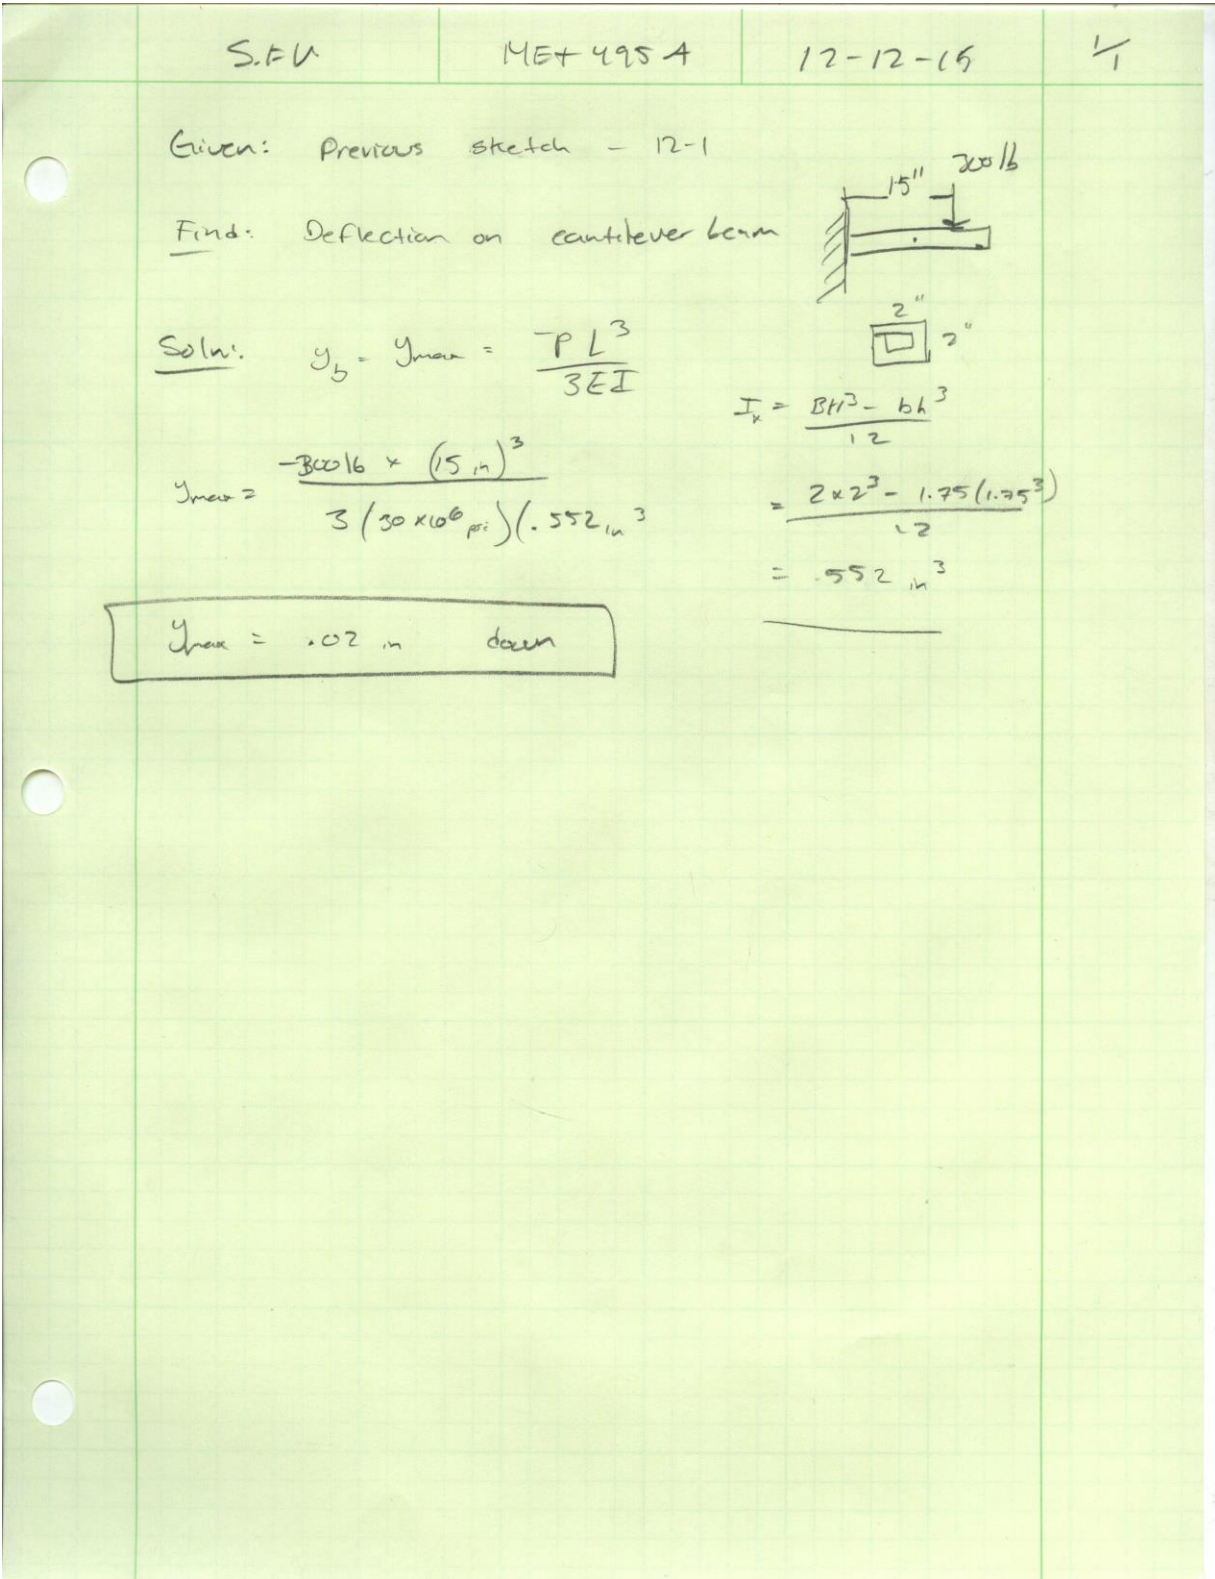 S.F.V. MET 495 A 12-12-15 1/1
Given: Previous sketch - 12-1
15" 300 lb
Find: Deflection on cantilever beam
2"
2"
Soln: y_b = y_max = -PL^3 / 3EI
I_x = BH^3 - bh^3 / 12
y_max = -300 lb × (15 in)^3 / 3(30×10^6 psi)(.552 in^3
= 2×2^3 - 1.75(1.75^3) / 12
= .552 in^3
y_max = .02 in down